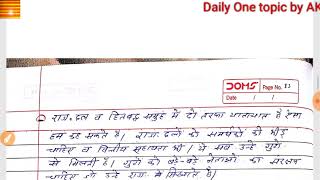 Daily One topic by AK
DOMS Page No. 13
Date / /
राज. दल व हितबद्ध समूह में दो तरफा यातायात है ऐसा
हम कह सकते है। राज. दलों को समर्थकों की भीड़
चाहिए व वित्तीय सहायता भी। ये सब उन्हें गुटों
से मिलती है। गुटों को बड़े-बड़े नेताओं का संरक्षण
चाहिए जो उन्हें राज. में